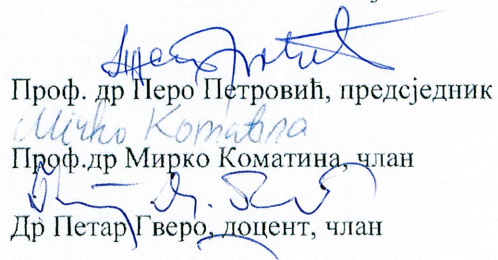 Проф. др Перо Петровић, предсједник
Мирко Коматина
Проф.др Мирко Коматина, члан
Др Петар Гверо, доцент, члан